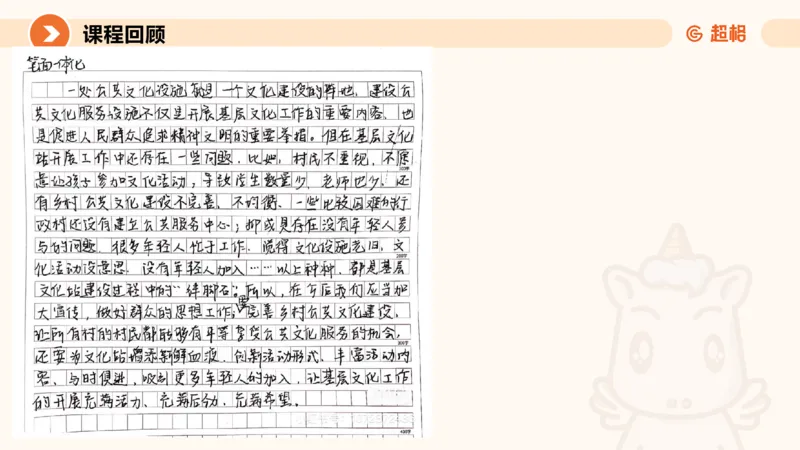 课程回顾
超格
笔面一体化
一处公共文化设施就是一个文化建设的阵地，建设公
共文化服务设施不仅是开展基层文化工作的重要内容，也
是促进人民群众追求精神文明的重要举措。但在基层文化
站开展工作中还存在一些问题，比如，村民不重视，不愿
意让孩子参加文化活动，导致学生数量少，老师也少，还
有乡村公共文化建设不完善，不均衡，一些比较困难的行
政村还没有建立公共服务中心；抑或是存在没有年轻人参
与的问题，很多年轻人忙于工作，觉得文化设施老旧，文
化活动没意思，没有年轻人加入……以上种种，都是基层
文化站建设过程中的"绊脚石"。所以，在今后我们应当加
大宣传，做好群众的思想工作；完善乡村公共文化建设，
让所有村的村民都能够有平等享受公共文化服务的机会，
还要为文化站增添新鲜血液，创新活动形式、丰富活动内
容，与时俱进，吸引更多年轻人的加入，让基层文化工作
的开展充满活力、充满后劲，充满希望。